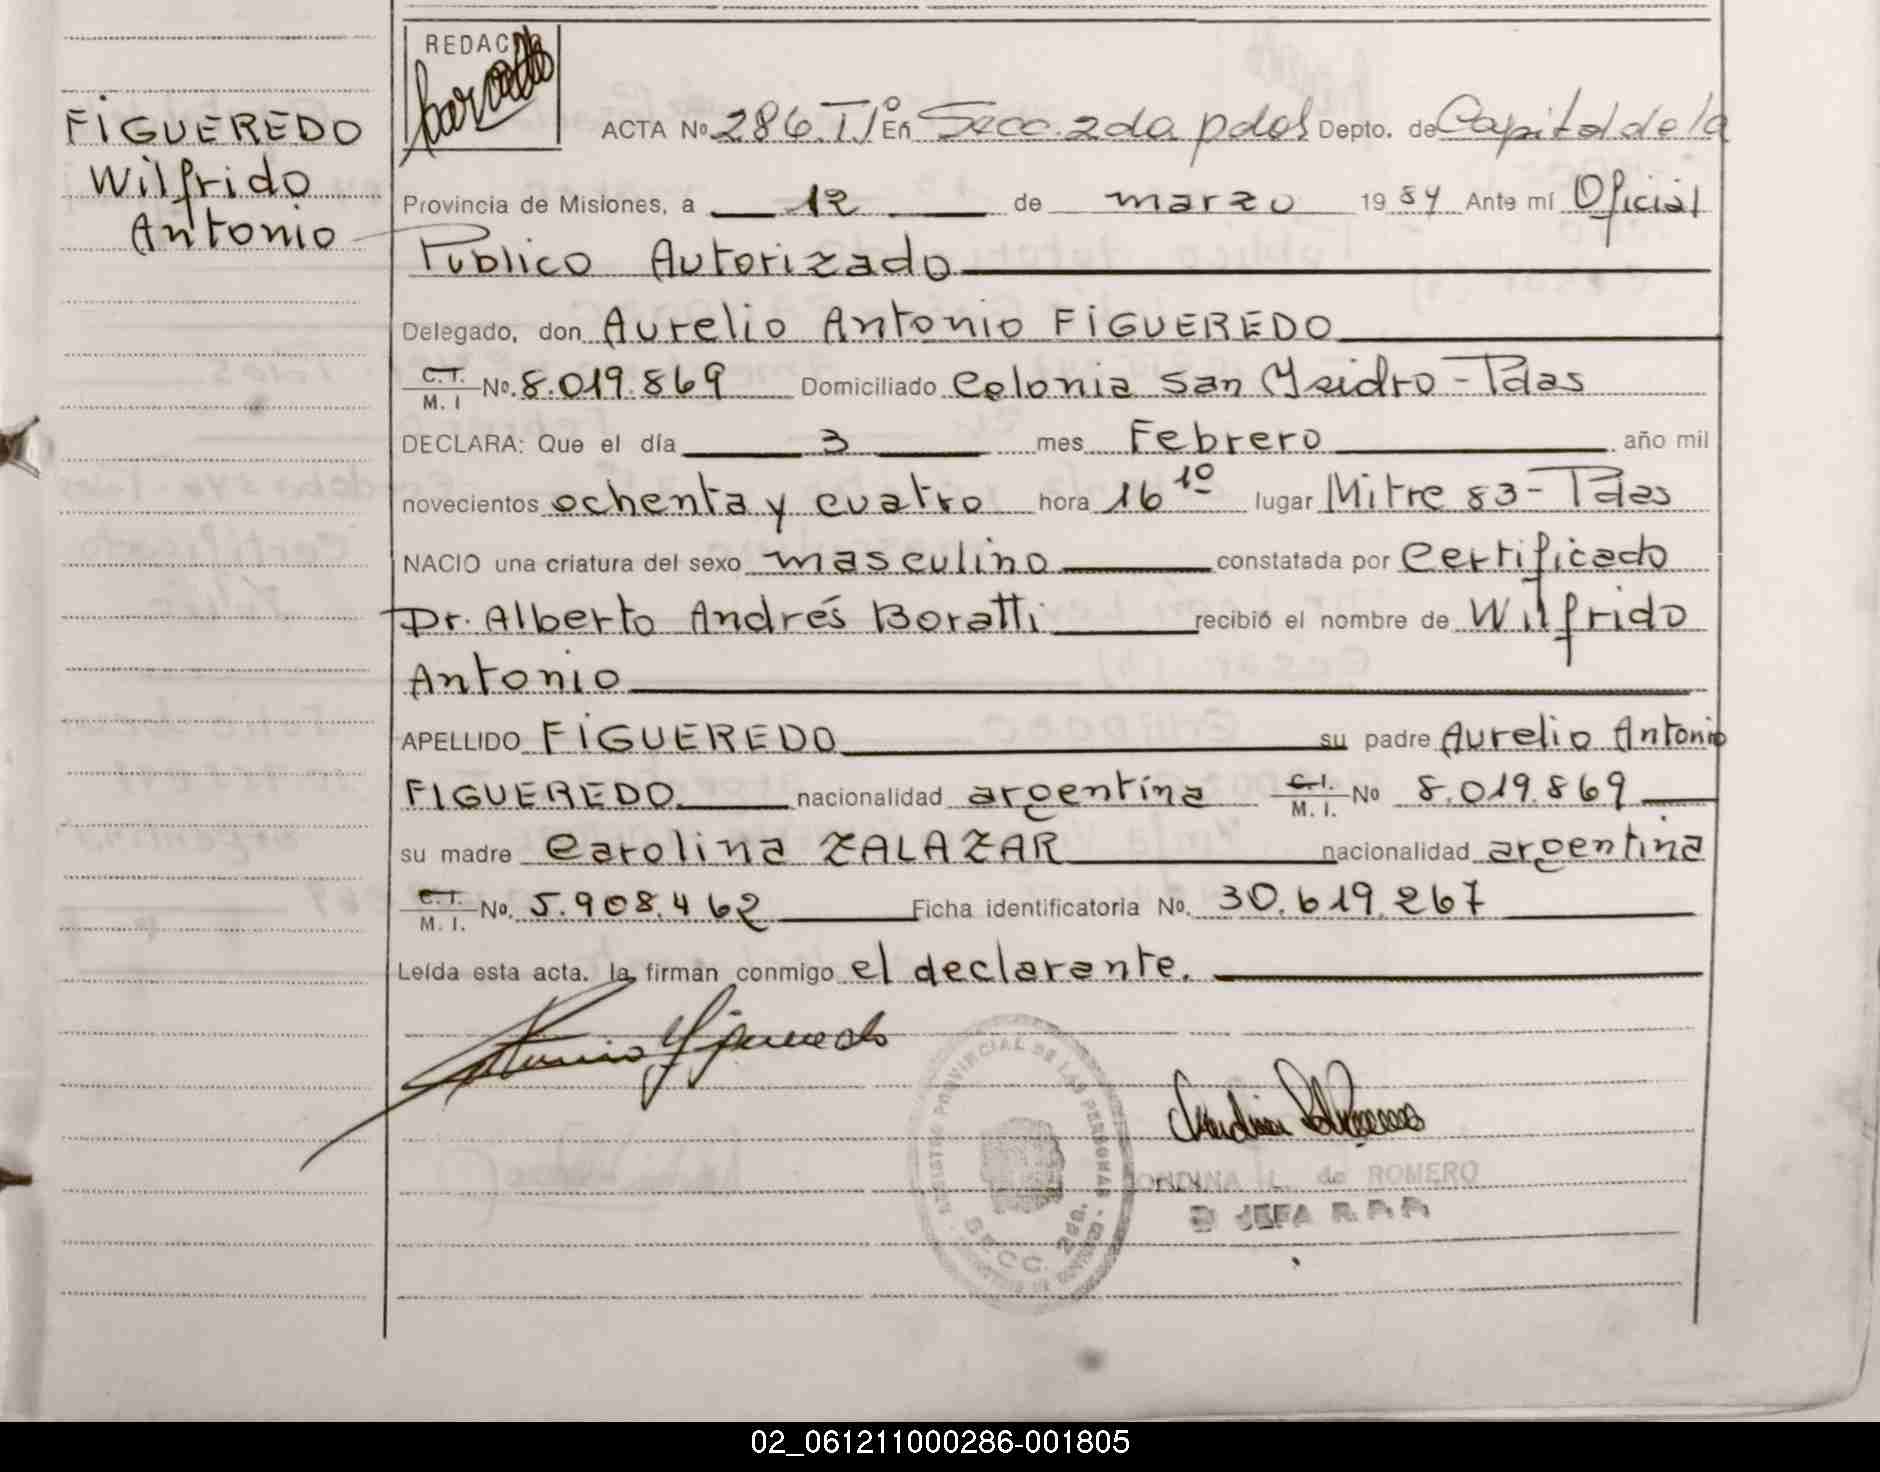 FIGUEREDO
Wilfrido
Antonio
REDAC
ACTA Nº 286. T. Iº En Secc. 2da pdas Depto. de Capital de la
Provincia de Misiones, a 12 de marzo 1984 Ante mí Oficial
Publico Autorizado
Delegado, don Aurelio Antonio FIGUEREDO
C.I. M. I Nº. 8.019.869 Domiciliado Colonia San Ysidro - Pdas
DECLARA: Que el día 3 mes Febrero año mil
novecientos ochenta y cuatro hora 16 10 lugar Mitre 83 - Pdas
NACIO una criatura del sexo masculino constatada por Certificado
Dr. Alberto Andrés Boratti recibió el nombre de Wilfrido
Antonio
APELLIDO FIGUEREDO su padre Aurelio Antonio
FIGUEREDO nacionalidad argentina C.I. M. I. Nº 8.019.869
su madre Carolina ZALAZAR nacionalidad argentina
C.I. M. I. Nº. 5.908.462 Ficha identificatoria No. 30.619.267
Leída esta acta. la firman conmigo el declarante.
Antonio Figueredo
REGISTRO PROVINCIAL DE LAS PERSONAS
SECC. 2da.
ONDINA L. de ROMERO
JEFA R.P.P.
02_061211000286-001805